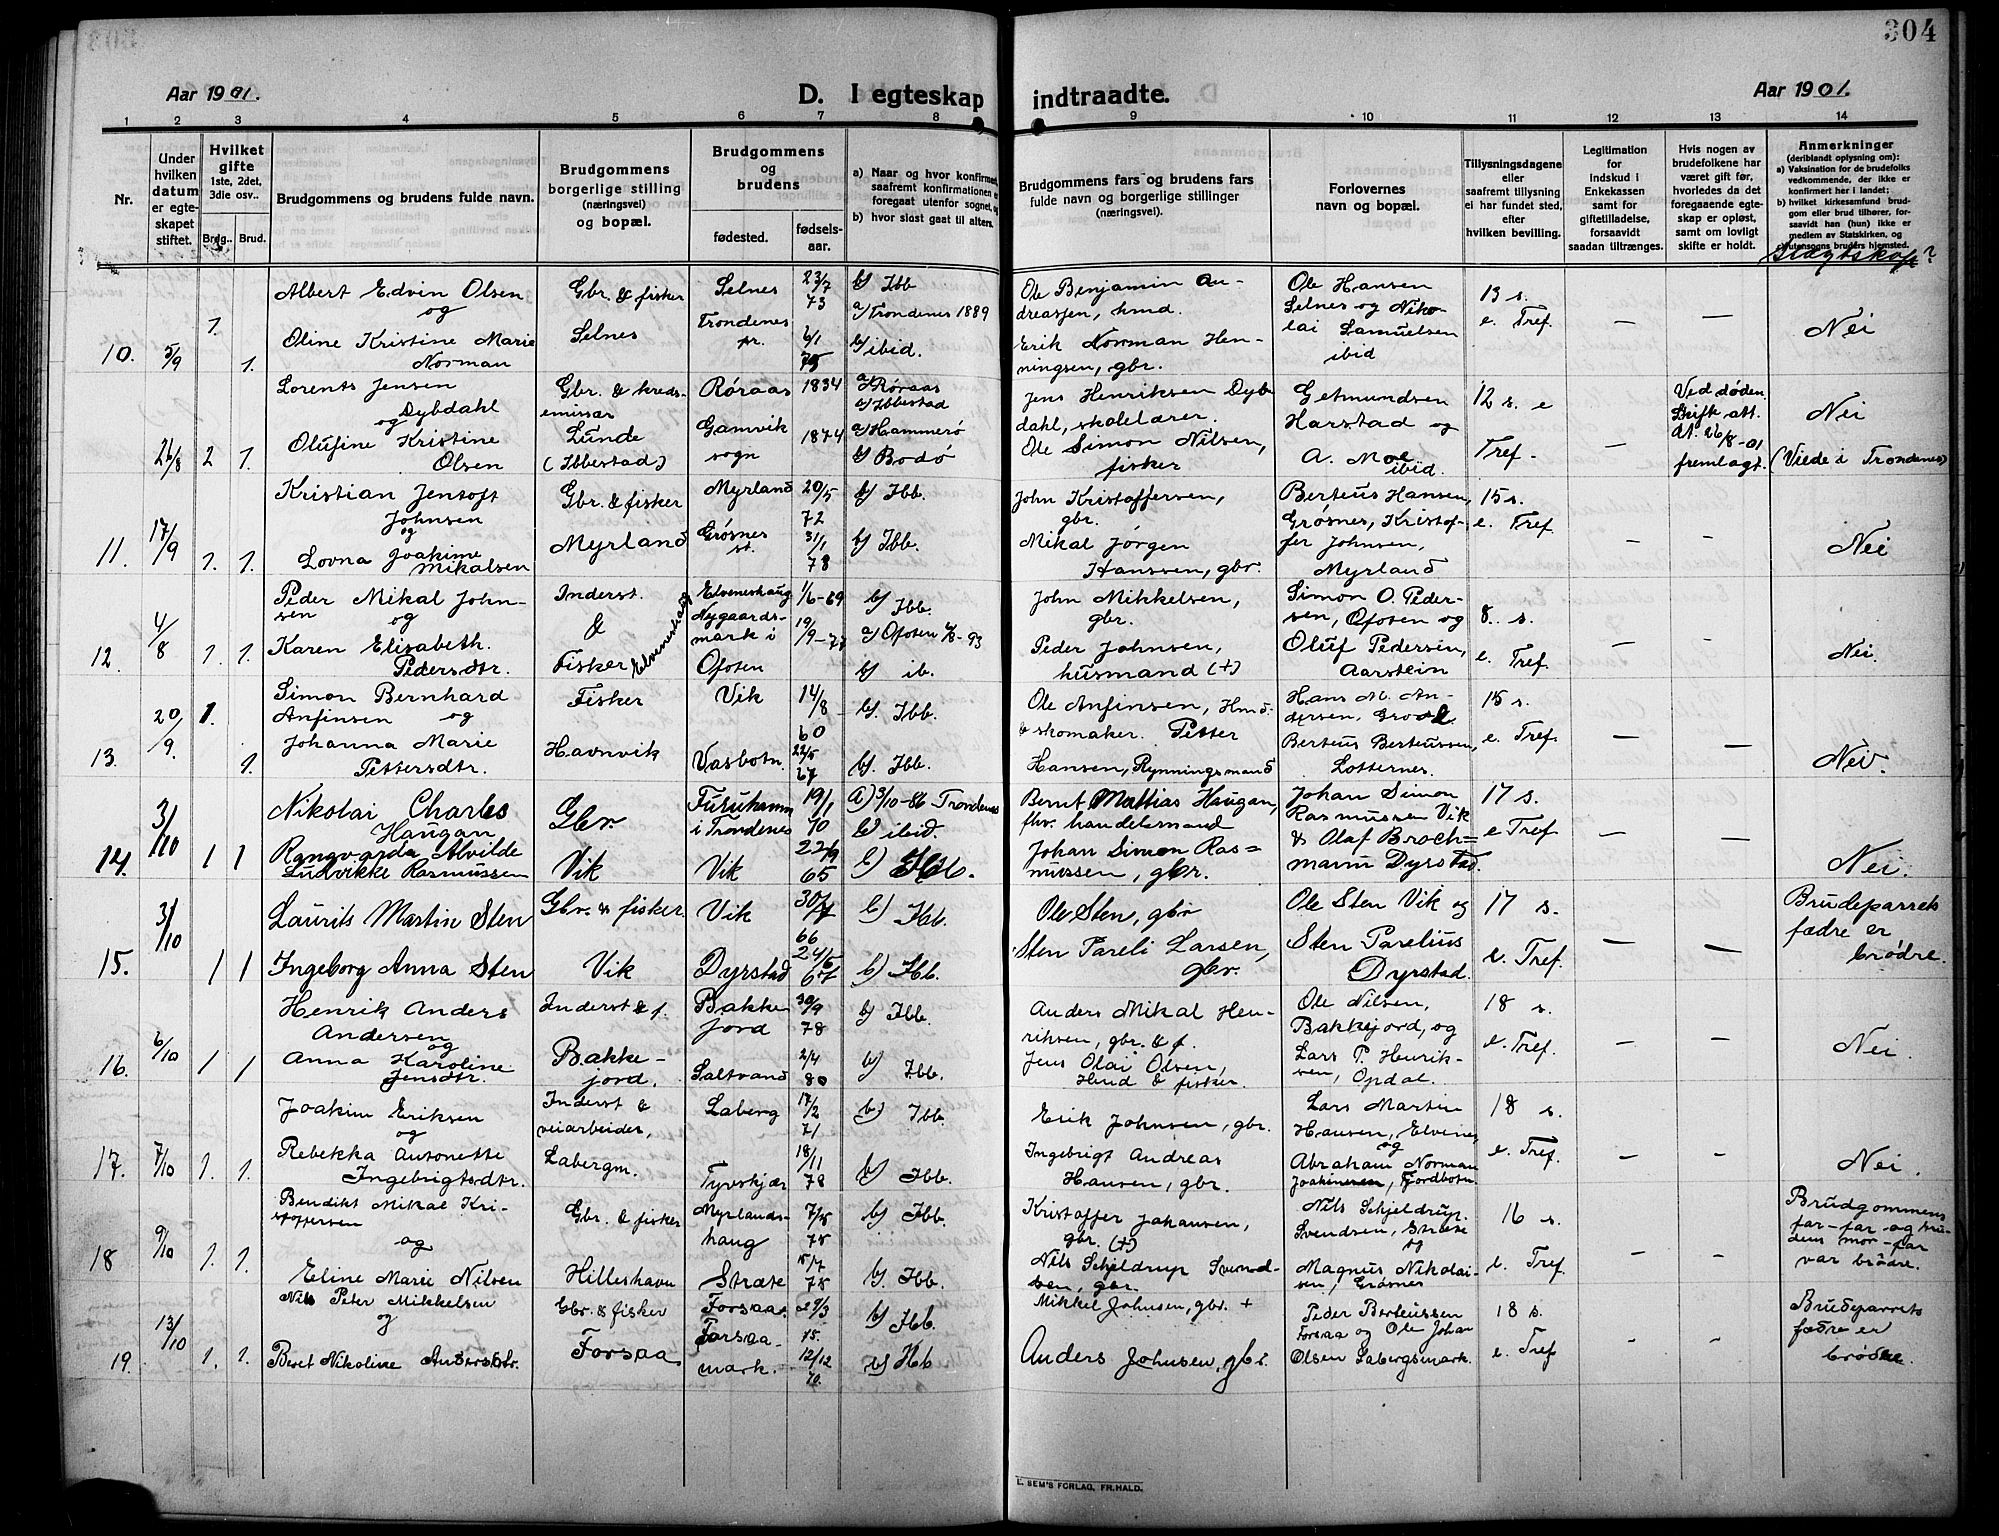 304
Aar 1901.
D. I egteskap indtraadte.
Aar 1901.
1 2 3 4 5 6 7 8 9 10 11 12 13 14
Nr.
Under hvilken datum er egteskapet stiftet.
Hvilket gifte 1ste, 2det, 3die osv..
Brdg.. Brud.
Brudgommens og brudens fulde navn.
Brudgommens borgerlige stilling (næringsvei) og bopæl.
Brudgommens og brudens
fødested.
fødselsaar.
a) Naar og hvor konfirmert, saafremt konfirmationen er foregaat utenfor sognet, og
b) hvor sidst gaat til alters.
Brudgommens fars og brudens fars fulde navn og borgerlige stillinger (næringsvei).
Forlovernes navn og bopæl.
Tillysningsdagene eller saafremt tillysning ei har fundet sted, efter hvilken bevilling.
Legitimation for indskud i Enkekassen samt for giftetilladelse, forsaavidt saadan tiltrænges.
Hvis nogen av brudefolkene har været gift før, hvorledes da det foregaaende egteskap er opløst, samt om lovligt skifte er holdt.
Anmerkninger
(deriblandt oplysning om):
a) Vaksination for de brudefolks vedkommende, der ikke er konfirmert her i landet;
b) hvilket kirkesamfund brudgom eller brud tilhører, forsaavidt han (hun) ikke er medlem av Statskirken, og
utensogns bruders hjemsted.
Slægtskap?
10. 5/9 1. 1.
Albert Edvin Olsen
og
Oline Kristine Marie
Norman
Gbr. & fisker
Selnes
Selnes
Trondenes
pr.
23/7
73
6/1
75
b) Ibb
a) Trondenes 1889
b) ibid.
Ole Benjamin An-
dreassen, hmd.
Erik Norman Hen-
ningsen, gbr.
Ole Hansen
Selnes og Niko-
lai Samuelsen
ibid
13 s.
e. Tref.
— —
Nei
26/8 2 1.
Lorents Jensen
Dybdahl
og
Olufine Kristine
Olsen
Gbr. & kreds-
emissær
Lunde
(Ibbestad)
Røraas
Gamvik
sogn
1834
1874
a) Røraas
b) Ibbestad
a) Hammerø
b) Bodø
Jens Henriksen Dyb
dahl, skolelærer.
Ole Simon Nilsen,
fisker
Getmundsen
Harstad og
A. Moe
ibid.
12 s. e
Tref.
—
Ved døden.
Skifte att.
At. 26/8-01
fremlagt.
Nei
(Viede i Trondenes)
11. 17/9 1. 1.
Kristian Jentoft
Johnsen
og
Lovna Joakime
Mikalsen
Gbr. & fisker
Myrland
Myrland
Grøsnes
st.
20/5
72
31/1
78
b) Ibb.
b) Ibb.
John Kristoffersen,
gbr.
Mikal Jørgen
Hanssen, gbr.
Berteus Hansen,
Grøsnes, Kristof-
fer Johnsen,
Myrland
15 s.
e. Tref.
— —
Nei
12. 4/8 1. 1.
Peder Mikal John-
sen og
Karen Elisabeth.
Pedersdtr.
Inderst.
&
Fisker Elveneshaug
Elveneshaug
Nygaards-
mark i
Ofoten
1/6-69
19/9-77
b) Ibb.
a) Ofoten
b) ib.
John Mikkelsen,
gbr.
Peder Johnsen,
husmand (+)
Simon O. Peder-
sen, Ofoten og
Oluf Pedersen,
Aarstein
8. s.
e. Tref.
— —
Nei.
13. 20/9 1. 1.
Simon Bernhard
Anfinsen og
Johanna Marie
Pettersdtr.
Fisker
Havnvik
Vik
Vasbotn.
14/8
60
22/5
b). Ibb.
b). Ibb.
Ole Anfinsen, Hmd.
& skomaker. Petter
Hansen, Rynningsmand
Hans M. An-
dersen,
Berteus Berteussen,
Lotternes.
15 s.
e. Tref.
— —
Nei.
14. 3/10 1 1
Nikolai Charles
Haugan
Rangvarda Alvilde
Ludvikke Rasmussen
Gbr.
Vik
Furuhamn
i Trondenes
Vik
19/1
70
22/9
65
a) 3/10-86 Trondenes
b) ibid.
b) Ibb.
Bernt Mattias Haugan,
fhv. handelsmand
Johan Simon Ras=
mussen, gbr.
Johan Simon
Rasmussen Vik
& Olaf Broch=
mann Dyrstad.
17 s.
e Tref
— —
Nei.
15. 3/10 1 1
Laurits Martin Sten
Ingeborg Anna Sten
Gbr. & fisker.
Vik
Vik
Dyrstad
66
b) Ibb.
b) Ibb.
Ole Sten, gbr
Sten Pareli Larsen,
gbr.
Ole Sten Vik og
Sten Parelius
Dyrstad.
17 s.
e. Tref.
— —
Brudeparrets
fædre er
brødre.
16. 6/10 1 1
Henrik Anders
Andersen
og
Anna Karoline
Jensdtr.
Inderst & f.
Bakke-
jord.
Bakke
jord
Saltvand
30/9
78
2/4
80
b) Ibb.
b) Ibb.
Anders Mikal Hen-
riksen, gbr. & f.
Jens Olai Olsen,
Hmd & fisker.
Ole Nilsen,
Bakkejord, og
Lars P. Henrik-
sen, Opdal.
18 s.
e. Tref.
— —
Nei.
17. 7/10 1. 1.
Joakim Eriksen
og
Rebekka Antonette
Ingebrigtsdtr.
Inderst &
veiarbeider,
Labergm.
Laberg
Tyvskjær
17/2
71
18/11
78
b) Ibb.
b) Ibb.
Erik Johnsen, gbr.
Ingebrigt Andreas
Hansen, gbr.
Lars Martin
Hansen, Elvenes
og
Abraham Norman
Joakimsen, Fjordbotn
18 s.
e. Tref.
— —
Nei.
18. 9/10 1. 1.
Bendikt Mikal Kri-
stoffersen
og
Eline Marie Nilsen
Gbr. & fisker
Hilleshavn
Myrlands-
haug
Stræte
75
78
b) Ibb.
b). Ibb.
Kristoffer Johansen,
gbr. (+)
Nils Schjeldrup Svend-
sen, gbr.
Nils Schjeldrup
Svendsen, Stræte
og
Magnus Nikolai-
sen, Grøsnes
16 s.
e. Tref.
— —
Brudgommens
far-far og bru-
dens mor-far
var brødre.
19. 13/10 1. 1.
Nils Peter Mikkelsen
og
Beret Nikoline Andersdtr.
Gbr. & fisker
Forsaa
Forsaa
Forsaa
mark.
75.
12/12
70.
b) Ibb.
b) Ibb
Mikkel Johnsen, gbr. +
Anders Johnsen, gbr.
Peder Berteussen
Forsaa og Ole Johan
Olsen Labergsmark.
18 s.
e. Tref
— —
Brudeparrets
fædre er
brødre.
L. SEM'S FORLAG, FR.HALD.